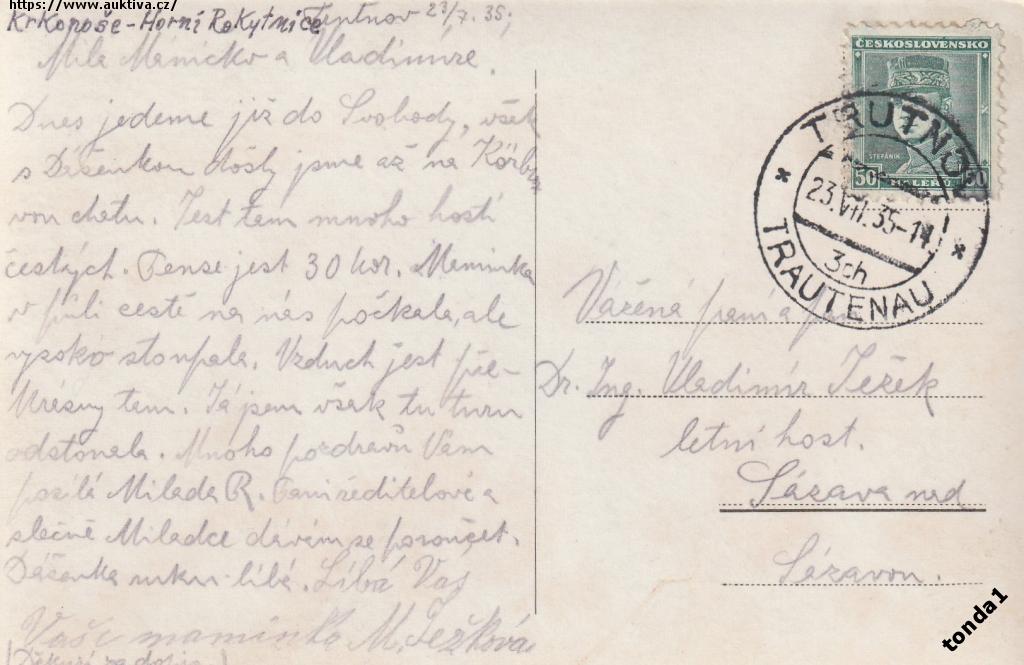 https://www.auktiva.cz/
Krkonoše-Horní Rokytnice
Trutnov 23/7. 35;
Milá Máničko a Vladimíre.
Dnes jedeme již do Svobody, však
s Dášenkou došly jsme až na Körbro
vou chatu. Jest tam mnoho hostí
českých. Pense jest 30 kor. Maminka
v půli cestě na nás počkala, ale
vysoko stoupala. Vzduch jest pře-
krásný tam. Já jsem však tu turu
odstonala. Mnoho pozdravů Vám
posílá Milada R. Paní ředitelové a
slečně Miladce dávám se poroučet.
Dášenka ruku líbá. Líbá Vás
Vaše maminka M. Ježková
(Děkuji za dopis)
ČESKOSLOVENSKO
ŠTEFÁNIK
50 HALÉŘŮ 50
TRUTNOV
23.VII.35-14
3ch
TRAUTENAU
Vážená paní a pan
Dr. Ing. Vladimír Ježek
letní host.
Sázava nad
Sázavou.
tonda1